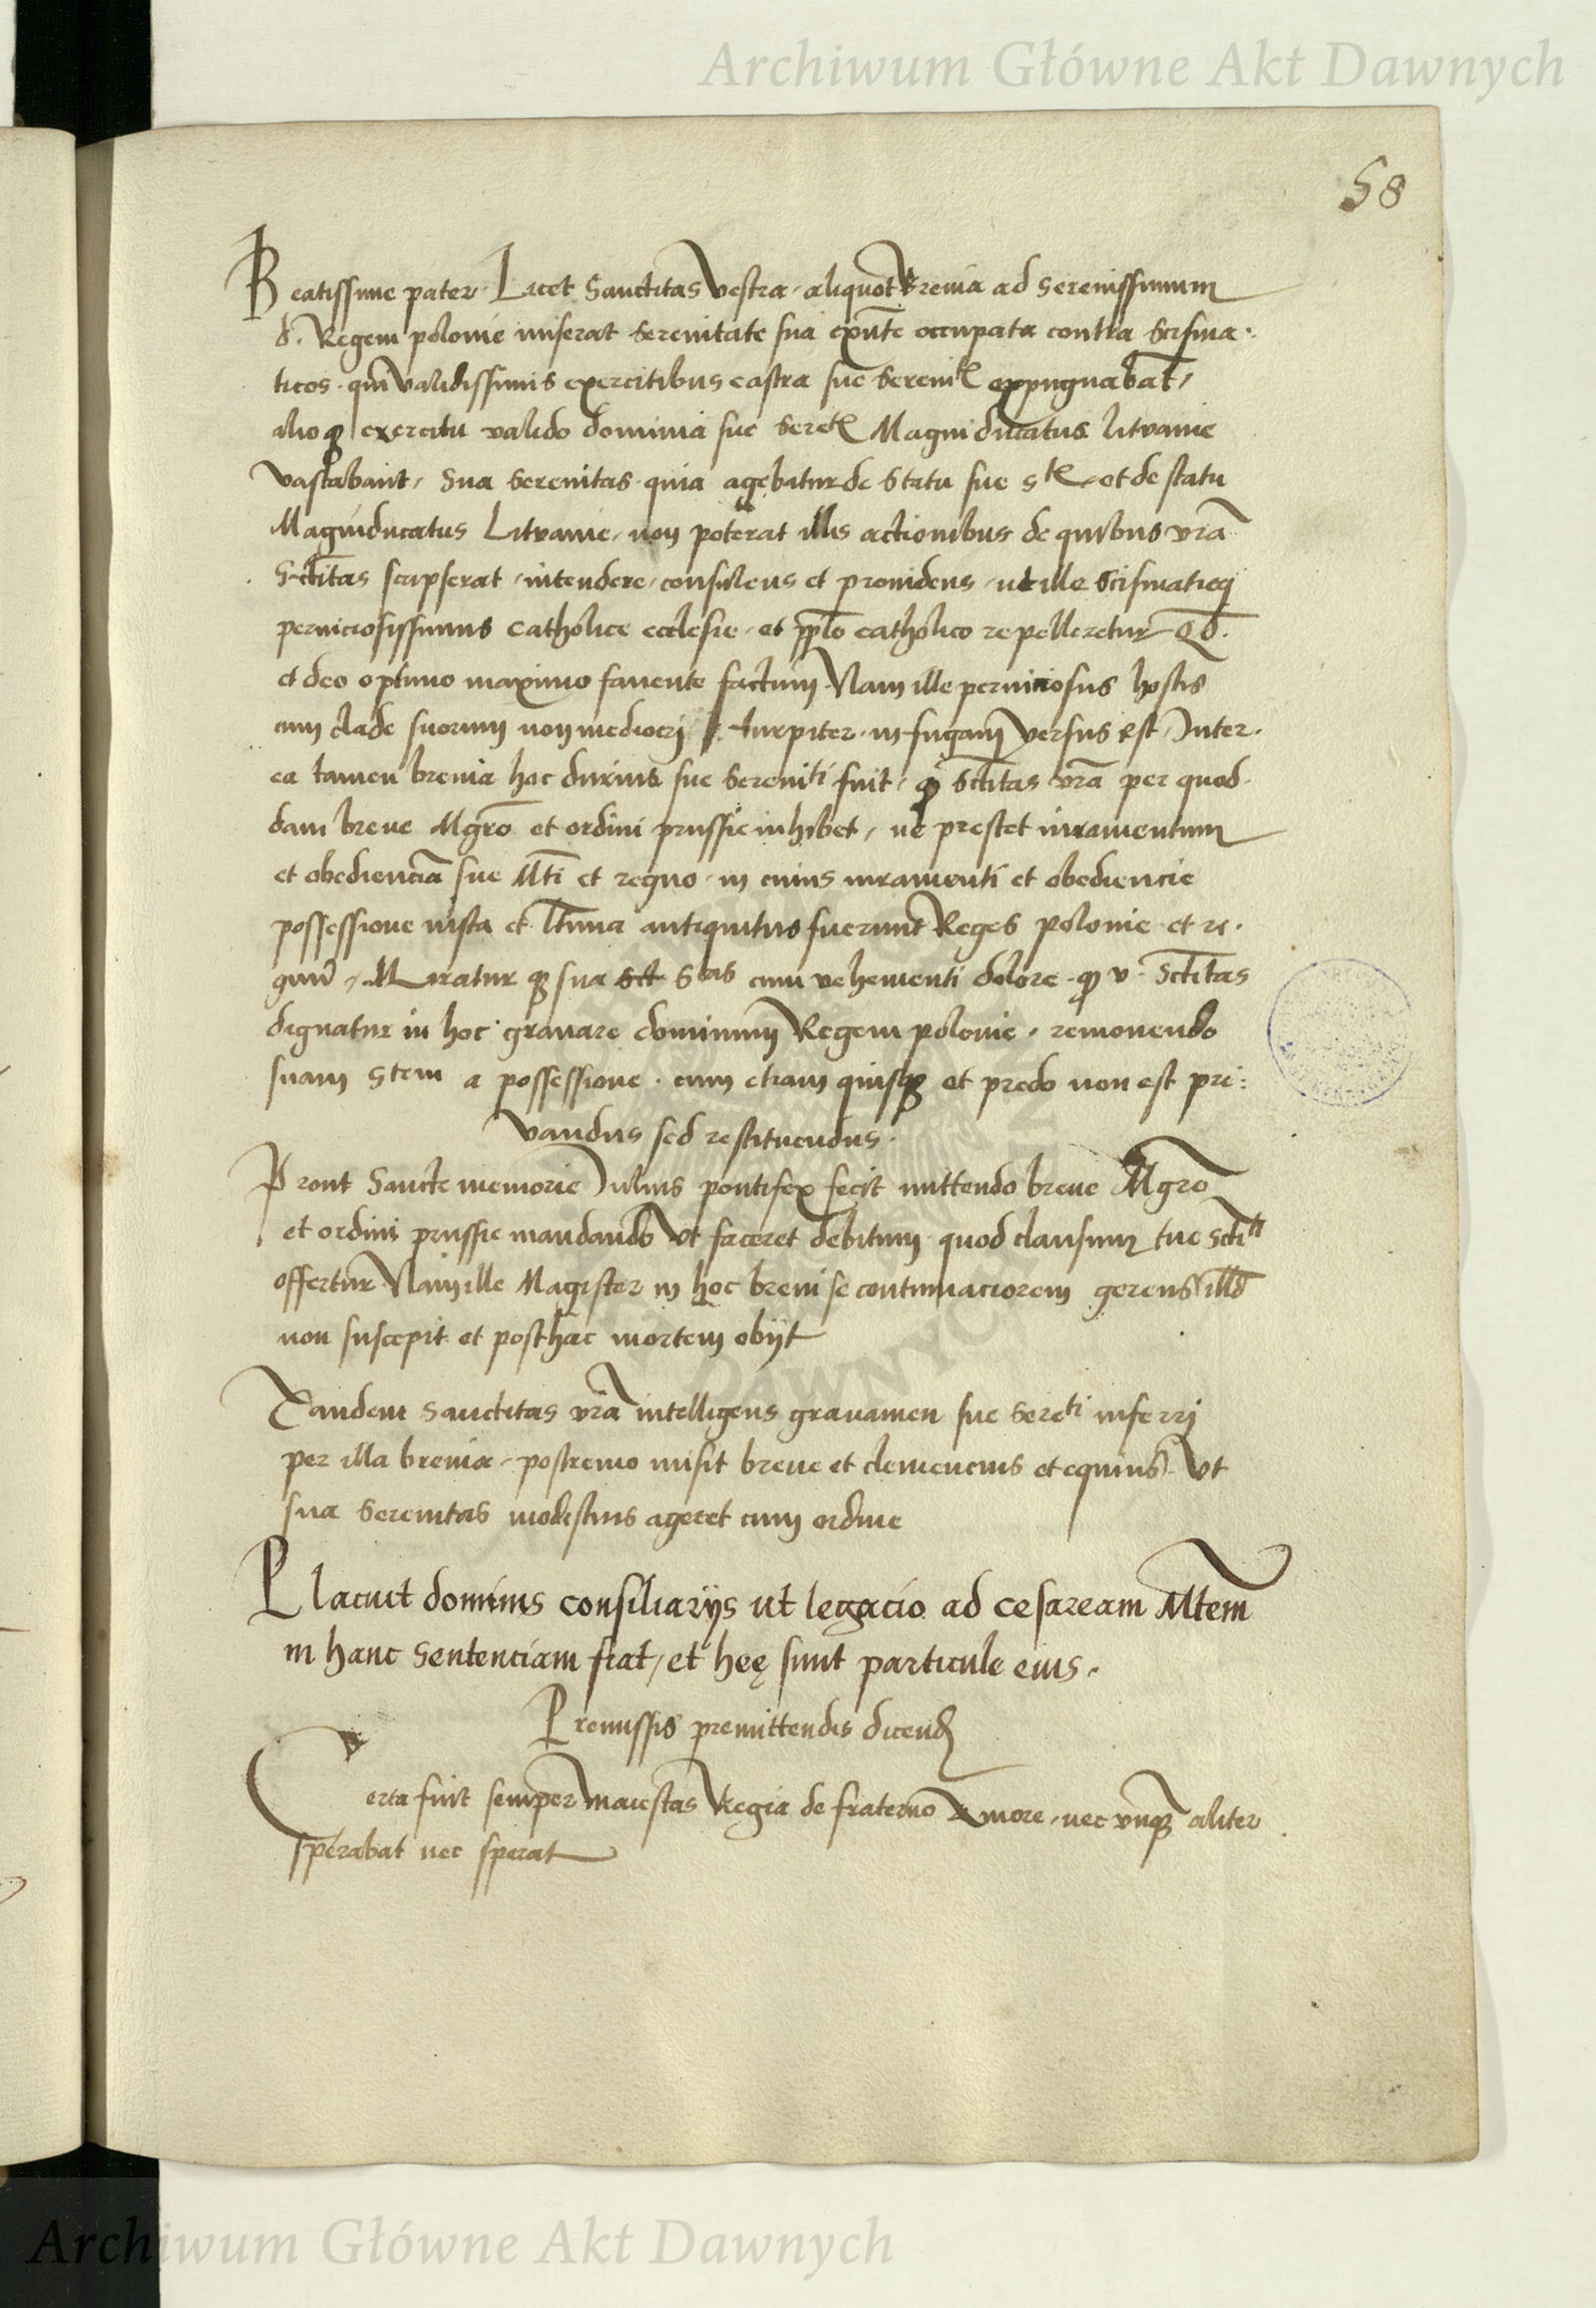 Archiwum Główne Akt Dawnych
58
Beatissime pater. Licet Sanctitas Vestra, aliquot brevia ad Serenissimum
d. Regem polonie miserat serenitate sua exn̄te occupata contra scisma:
ticos. qui validissimis exercitibus castra sue Serenitͭ oppugnabāt,
alioq exercitu valido dominia sue Seretͭ Magni ducatus litvanie
vastabant, Sua Serenitas quia agebatur de Statu sue Stͭ, et de statu
Magniducatus Litvanie, non poterat illis actionibus de quibus vrā
Sctitas scripserat, intendere, consulens et providens, ut ille Scismaticq
perniciosissimus catholice ecclesie, et pplo catholico repelleretur Qd.
et deo optimo maximo favente factum. Nam ille perniciosus hostis
cum clade suorum non mediocrj turpiter in fugam versus est. Inter.
ea tamen brevia hoc durius sue Sereniti fuit, q Sctitas vrā per quod.
dam breve Mgrō et ordini prussie inhibet, ne prestet iuramentum
et obedienciā sue Mti et regno. in cuius iuramenti et obediencie
possessione iusta et ltima antiquitus fuerunt Reges polonie et re.
gnū. Miratur q sua Stas cum vehementi dolore, q v. Sctitas
dignatur in hoc gravare dominum Regem polonie, removendo
suam Stem a possessione. cum etiam quisq et predo non est pri:
vandus sed restituendus.
Prout Sancte memorie Iulius pontifex fecit mittendo breve Mgrō
et ordini prussie mandando Vt faceret debitum quod clausum tue Sctiti
offertur. Nam ille Magister in hoc brevi se contumaciorem gerens illd
non suscepit et posthac mortem obijt
Tandem Sanctitas vrā intelligens gravamen sue Sereti inferrj
per illa brevia, postremo misit breve et clemencius et equius. Vt
sua Serenitas modestius ageret cum ordine
Placuit dominis consiliarijs ut legacio ad cesaream Mtem
in hanc Sentenciam fiat, et heę sunt particule eius.
Premissis premittendis dicend
Certa fuit semper maiestas Regia de fraterno amore, nec vnq aliter
sperabat nec sperat
Archiwum Główne Akt Dawnych